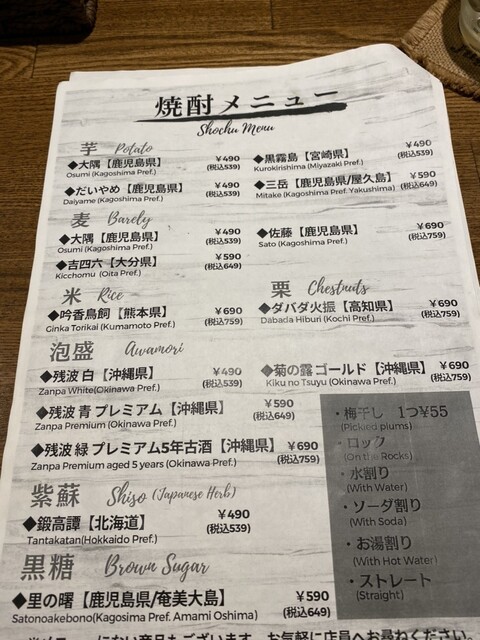 焼酎メニュー
Shochu Menu
芋 Potato
◆大隅【鹿児島県】 ¥490
Osumi (Kagoshima Pref.) (税込539)
◆黒霧島【宮崎県】 ¥490
Kurokirishima (Miyazaki Pref.) (税込539)
◆だいやめ【鹿児島県】 ¥490
Daiyame (Kagoshima Pref.) (税込539)
◆三岳【鹿児島県/屋久島】 ¥590
Mitake (Kagoshima Pref. Yakushima) (税込649)
麦 Barely
◆大隅【鹿児島県】 ¥490
Osumi (Kagoshima Pref.) (税込539)
◆佐藤【鹿児島県】 ¥690
Sato (Kagoshima Pref.) (税込759)
◆吉四六【大分県】 ¥590
Kicchomu (Oita Pref.) (税込649)
米 Rice
◆吟香鳥飼【熊本県】 ¥690
Ginka Torikai (Kumamoto Pref.) (税込759)
栗 Chestnuts
◆ダバダ火振【高知県】 ¥690
Dabada Hiburi (Kochi Pref.) (税込759)
泡盛 Awamori
◆残波 白【沖縄県】 ¥490
Zanpa White(Okinawa Pref.) (税込539)
◆菊の露 ゴールド【沖縄県】 ¥690
Kiku no Tsuyu (Okinawa Pref.) (税込759)
◆残波 青 プレミアム【沖縄県】 ¥590
Zanpa Premium (Okinawa Pref.) (税込649)
◆残波 緑 プレミアム5年古酒【沖縄県】 ¥690
Zanpa Premium aged 5 years (Okinawa Pref.) (税込759)
紫蘇 Shiso (Japanese Herb)
◆鍛高譚【北海道】 ¥490
Tantakatan(Hokkaido Pref.) (税込539)
黒糖 Brown Sugar
◆里の曙【鹿児島県/奄美大島】 ¥590
Satonoakebono(Kagosima Pref. Amami Oshima) (税込649)
・梅干し 1つ¥55
(Pickled plums)
・ロック
(On the Rocks)
・水割り
(With Water)
・ソーダ割り
(With Soda)
・お湯割り
(With Hot Water)
・ストレート
(Straight)
にない商品もございます。お気軽に店員へお尋ねください。